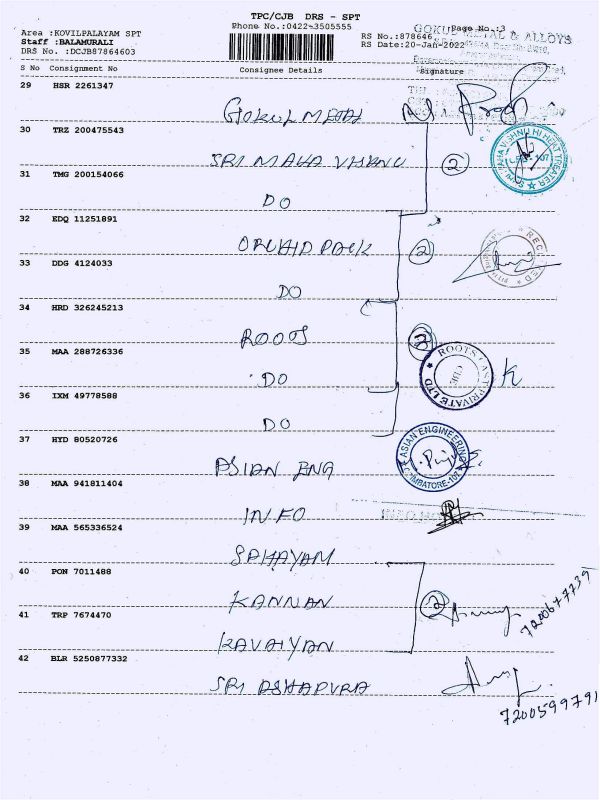 TPC/CJB DRS - SPT
Phone No.:0422-3505555
Area :KOVILPALAYAM SPT
Staff :BALAMURALI
DRS No. :DCJB87864603
Page No.:3
RS No.:878646
RS Date:20-Jan-2022
GOKUL METAL & ALLOYS
S No Consignment No Consignee Details Signature
29 HSR 2261347
GOKUL METAL
30 TRZ 200475543
SRI MAHA VISHNU 2
31 TMG 200154066
DO
32 EDQ 11251891
ORCHID PACK 2
RECEIVED
33 DDG 4124033
DO
34 HRD 326245213
ROOTS 3
35 MAA 288726336
DO
ROOTS CAST PRIVATE LTD
CBE
36 IXM 49778588
DO
37 HYD 80520726
ASIAN ENG
ASIAN ENGINEERING
COIMBATORE-107
38 MAA 941811404
INFO
39 MAA 565336524
SAHAYAM
40 PON 7011488
KANNAN 2
7200677239
41 TRP 7674470
KAVAIYAN
42 BLR 5250877332
SRI ASHAPURA
7200599791